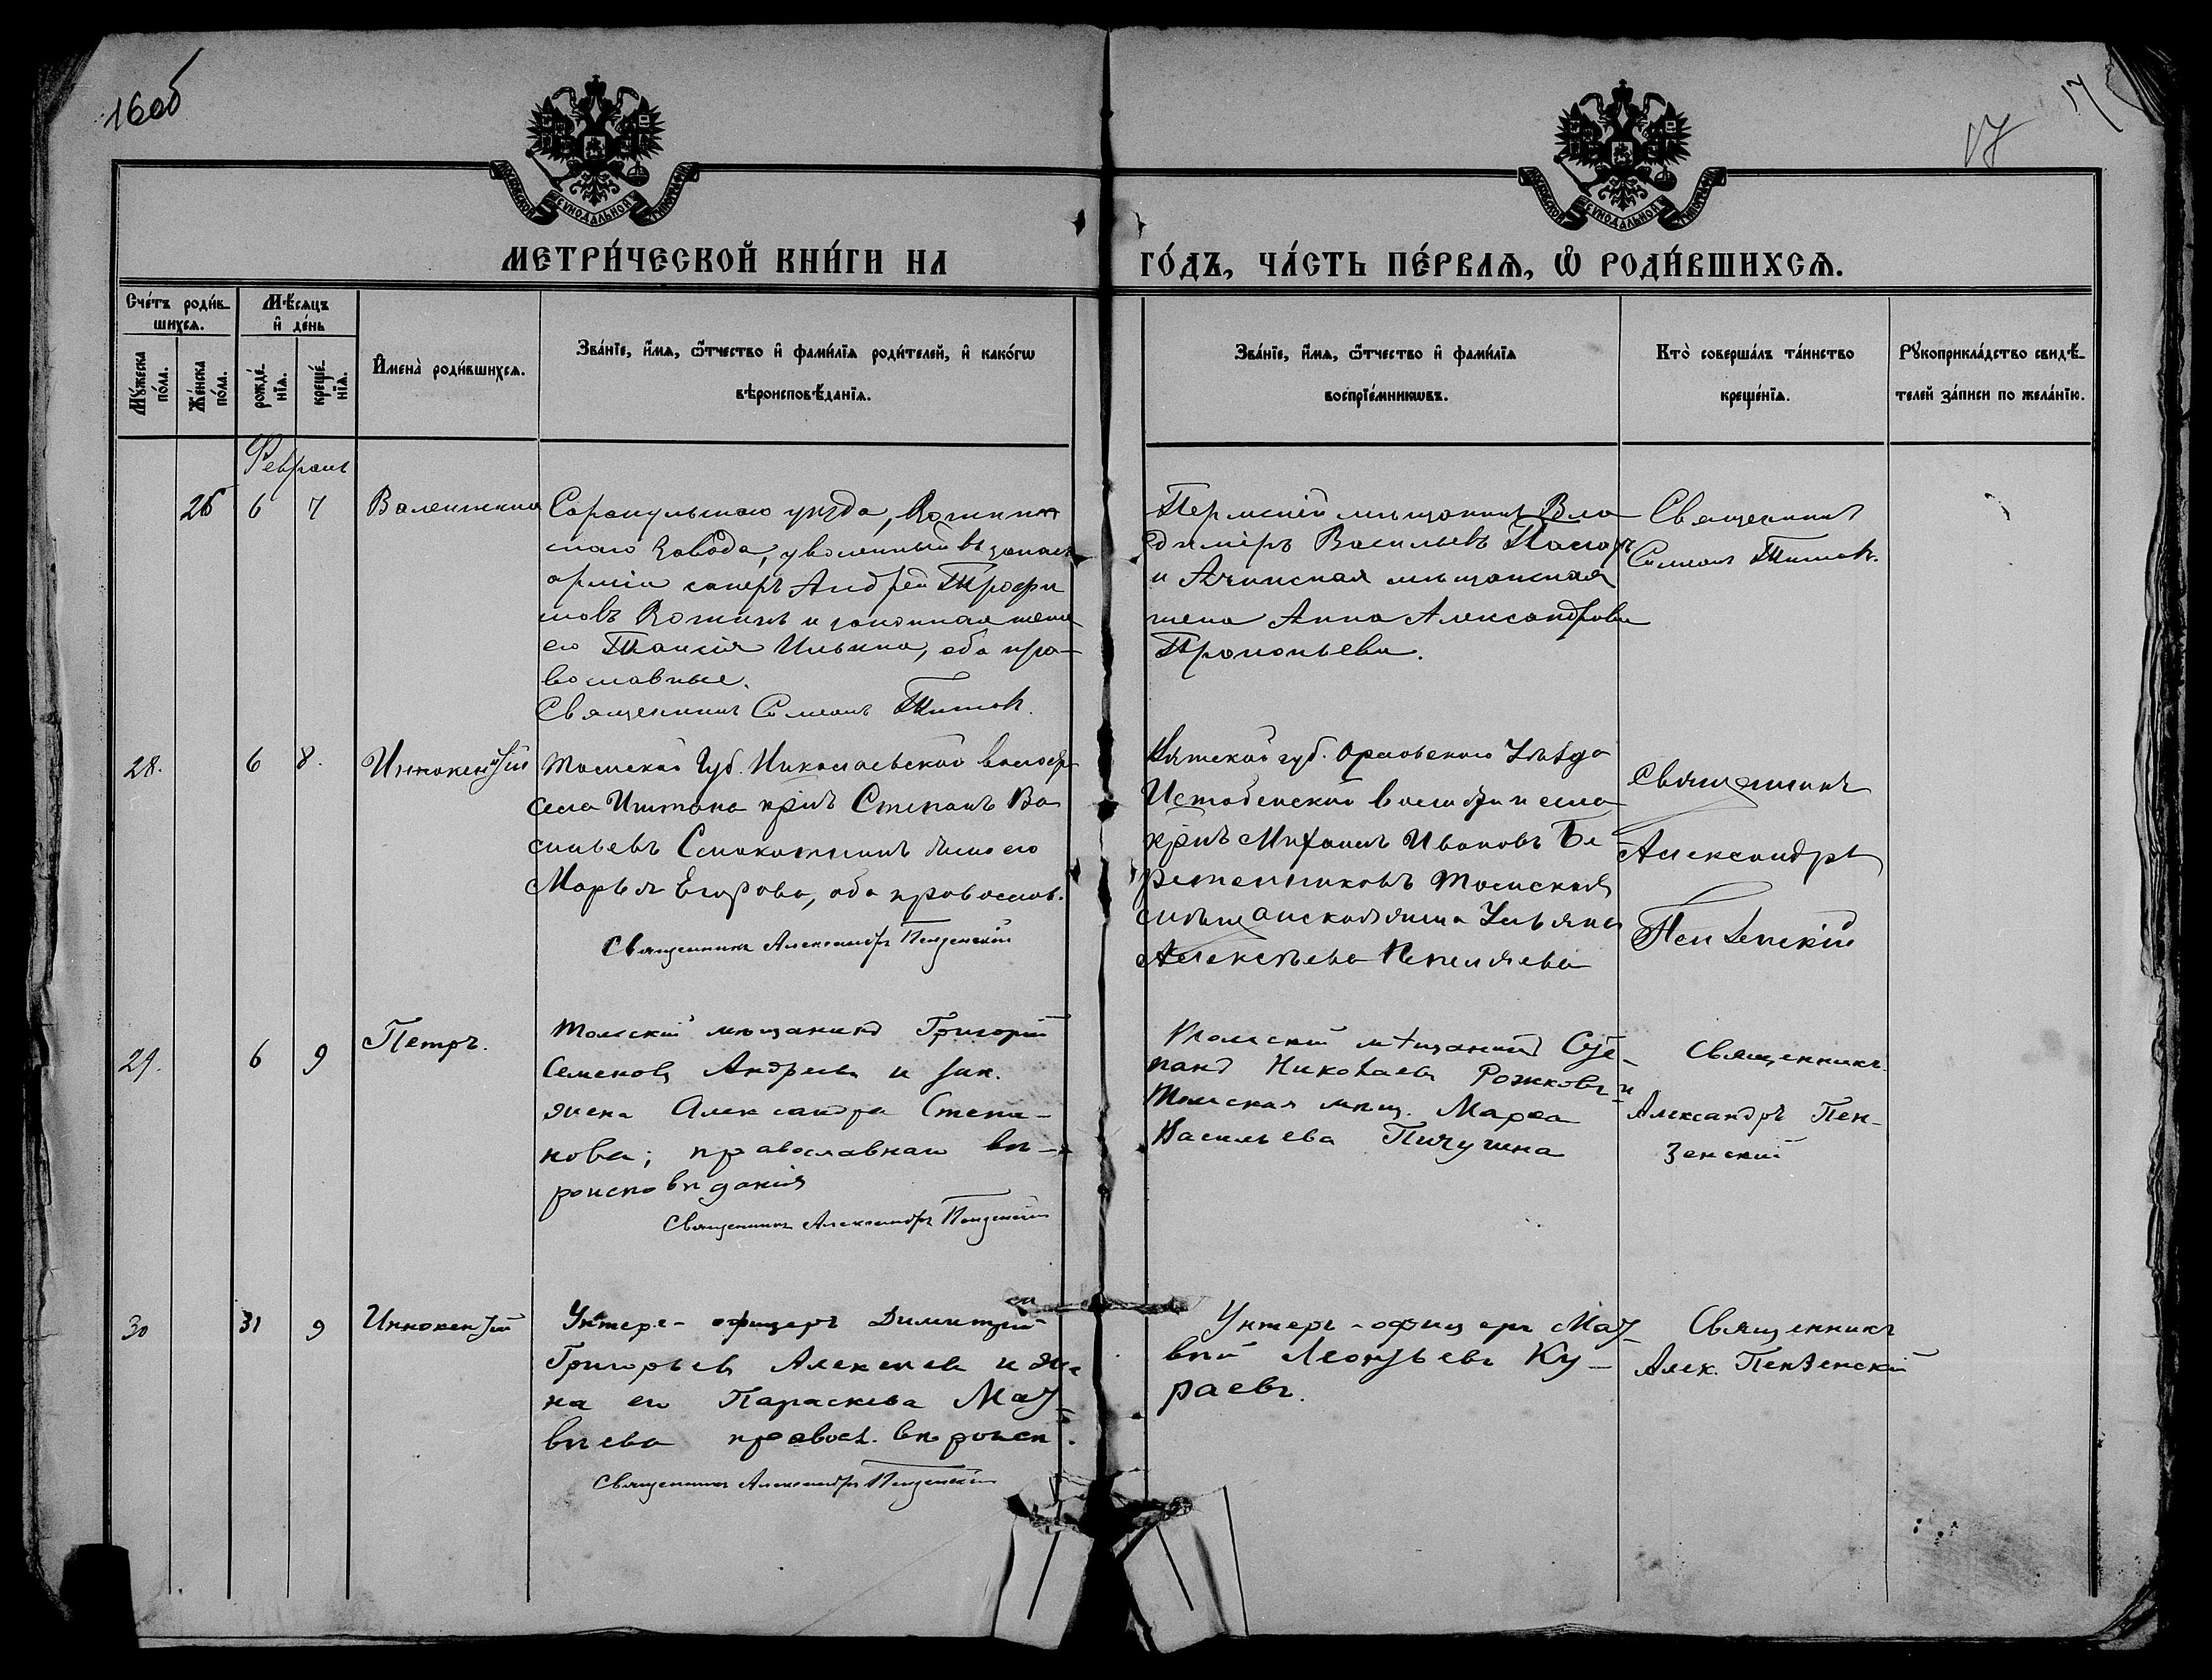 16об
17
17
МОСКОВСКОЙ СѴНОДАЛЬНОЙ ТИПОГРАФІИ
МОСКОВСКОЙ СѴНОДАЛЬНОЙ ТИПОГРАФІИ
МЕТРИ́ЧЕСКОЙ КНИ́ГИ НА
ГО́ДЪ, ЧА́СТЬ ПЕ́РВАѦ, Ѡ РОДИ́ВШИХСѦ.
Сче́тъ роди́в-
шихсѧ.
Мꙋ́жеска
по́ла.
Же́нска
по́ла.
Мѣ́сѧцъ
и҆ де́нь
рожде́-
нїѧ.
креще́-
нїѧ.
И҆мена̀ роди́вшихсѧ.
Зва́нїе, и҆́мѧ, ѻ҆́тчество и҆ фами́лїѧ роди́телей, и҆ како́гѡ
вѣроисповѣ́данїѧ.
Зва́нїе, и҆́мѧ, ѻ҆́тчество и҆ фами́лїѧ
воспрїе́мникѡвъ.
Кто̀ соверша́лъ та́инство
креще́нїѧ.
Рꙋкоприкла́дство свидѣ́-
телей за́писи по жела́нїю.
Февраль
26 6 7 Валентина
Сарапульскаго уѣзда, Воткин
скаго завода, уволенный въ запасъ
арміи саперъ Андрей Трофи
мовъ и законная жена
его Таисія Ильина, оба пра-
вославные.
Священникъ Симеонъ Титовъ.
Пермскій мѣщанинъ Вла
димиръ Васильевъ
и Ачинская мѣщанская
жена Анна Александрова
Прокопьева.
Священникъ
Симеонъ Титовъ.
28. 6 8. Иннокентій
Томской Губ. Николаевской волости
села Иштана крнъ Степанъ Ва
сильевъ жена его
Марья Егорова, оба православ.
Священникъ Александръ Пензенскій
Вятской губ. Орловскаго Уѣзда
Истобенской волости и села
крнъ Михаилъ Ивановъ Бе-
ретенниковъ Томская
мѣщанская жена Ульяна
Алексѣева Пепеляева
Священникъ
Александръ
Пензенскій
29. 6 9 Петръ.
Томскій мѣщанинъ Григорій
Семеновъ Андреевъ и зак.
жена Александра Степа-
нова; православнаго вѣ-
роисповѣданія
Священникъ Александръ Пензенскій
Томскій мѣщанинъ Сте-
панъ Николаевъ Рожковъ и
Томская мѣщ. Марѳа
Васильева Пичугина
Священникъ
Александръ Пен-
зенскій
30 31 9 Иннокентій
Унтеръ-офицеръ Димитрій
Григорьевъ Алексѣевъ и же
на его Параскева Мат-
вѣева правосл. вѣроисп.
Священникъ Александръ Пензенскій
Унтеръ-офицеръ Мат-
вѣй Леонтьевъ Ку-
раевъ.
Священникъ
Алек. Пензенскій